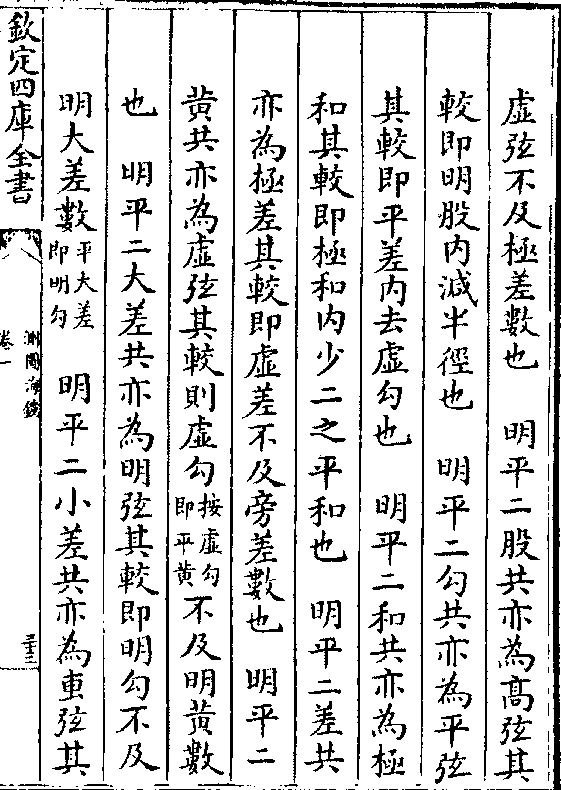 虛弦不及極差數也　明平二股共亦為高弦其
較即明股内減半徑也　明平二勾共亦為平弦
其較即平差内去虛勾也　明平二和共亦為極
和其較即極和内少二之平和也　明平二差共
亦為極差其較即虛差不及旁差數也　明平二
黄共亦為虛弦其較則虛勾按虛勾即平黄不及明黄數
也　明平二大差共亦為明弦其較即明勾不及
明大差數平大差即明勾　明平二小差共亦為叀弦其
欽定四庫全書
測圓海鏡
卷一
三十三